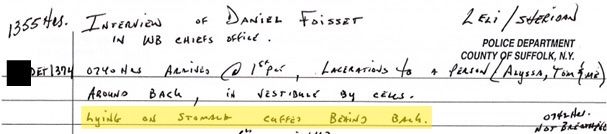 1355 HRS. INTERVIEW OF DANIEL FOISSET LELI/SHERIDAN
IN WB CHIEFS OFFICE.
POLICE DEPARTMENT
COUNTY OF SUFFOLK, N.Y.
DET 1374 0740 HRS ARRIVED @ 1ST PCT, LACERATIONS TO A PERSON (ALYSSA, TOM & ME)
AROUND BACK, IN VESTIBULE BY CELLS.
LYING ON STOMACH CUFFED BEHIND BACK. 0742 HRS
NOT BREATHING